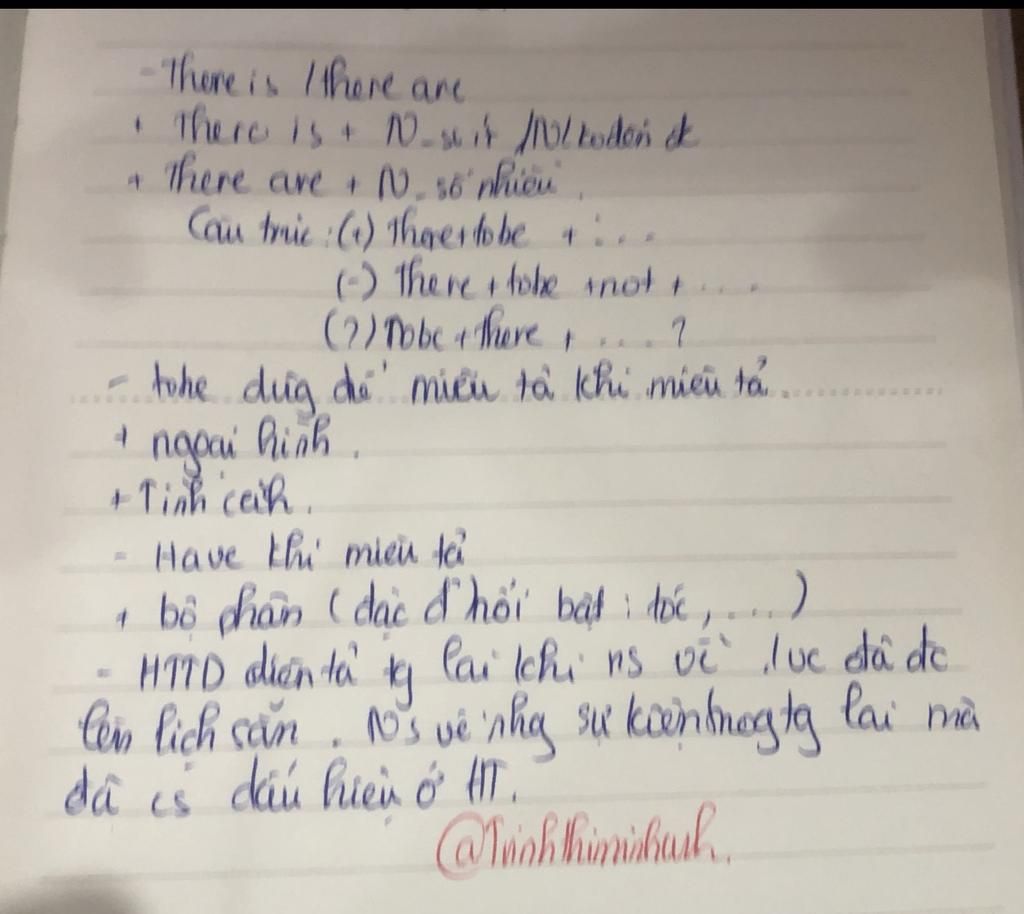 - There is / there are
+ There is + N_số ít /N(ko đếm đc
+ There are + N_số nhiều.
Cấu trúc: (+) There + tobe + ...
(-) There + tobe + not + ....
(?) Tobe + there + .... ?
- tobe dùg để miêu tả khi miêu tả
+ ngoại hình.
+ Tính cách.
- Have khi miêu tả
+ bộ phận (đặc đ' nổi bật: tóc, ....)
- HTTD diễn tả tg lai khi ns về lúc đã đc
lên lịch sẵn. Ns về nhg sự kiện trog tg lai mà
đã có dấu hiệu ở HT.
@Trinhthiminhanh.